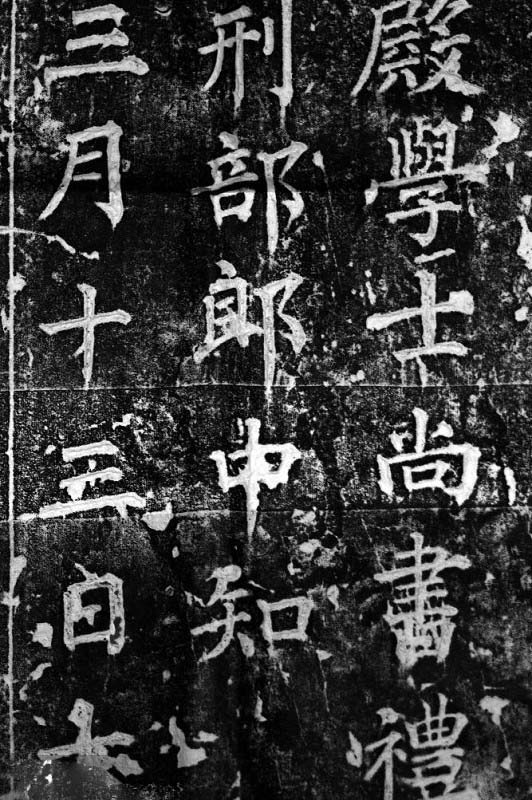 殿學士尚書禮
刑部郎中知
三月十三日